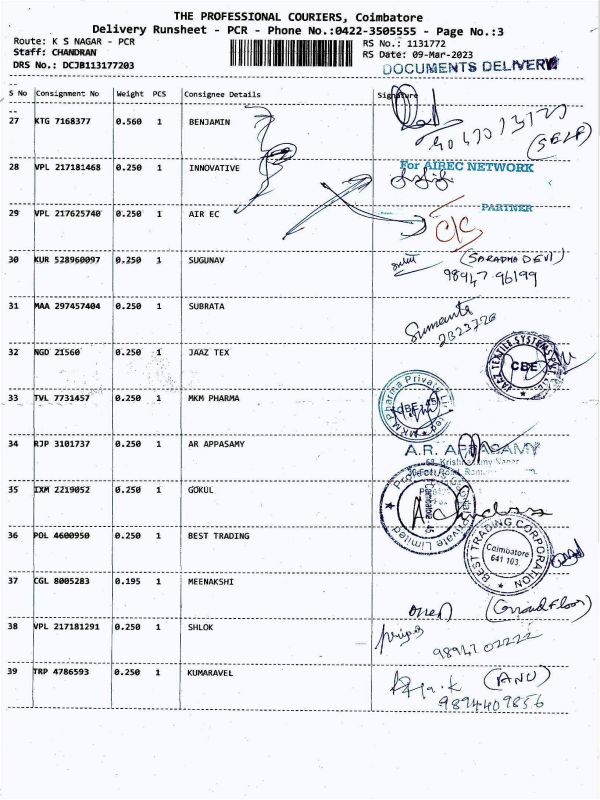 THE PROFESSIONAL COURIERS, Coimbatore
Delivery Runsheet - PCR - Phone No.:0422-3505555 - Page No.:3
Route: K S NAGAR - PCR RS No.: 1131772
Staff: CHANDRAN RS Date: 09-Mar-2023
DRS No.: DCJB113177203 DOCUMENTS DELIVERY
S No Consignment No Weight PCS Consignee Details Signature
27 KTG 7168377 0.560 1 BENJAMIN
(SELF)
28 VPL 217181468 0.250 1 INNOVATIVE For AIREC NETWORK
29 VPL 217625740 0.250 1 AIR EC PARTNER
C/C
30 KUR 528960097 0.250 1 SUGUNAV (SARADHA DEVI)
98947-96199
31 MAA 297457404 0.250 1 SUBRATA
2B23726
32 NGD 21560 0.250 1 JAAZ TEX JAAZ TEXTILE SYSTEMS PVT. LTD.
CBE
33 TVL 7731457 0.250 1 MKM PHARMA MKM Pharma Private Limited
CBE-45
34 RJP 3101737 0.250 1 AR APPASAMY A.R. APPASAMY
35 IXM 2219052 0.250 1 GOKUL Private Limited
Coimbatore 45
36 POL 4600950 0.250 1 BEST TRADING BEST TRADING CORPORATION
Coimbatore
641 103.
37 CGL 8005283 0.195 1 MEENAKSHI (Ground Floor)
38 VPL 217181291 0.250 1 SHLOK Priya
98947 02222
39 TRP 4786593 0.250 1 KUMARAVEL (ANU)
9894409856